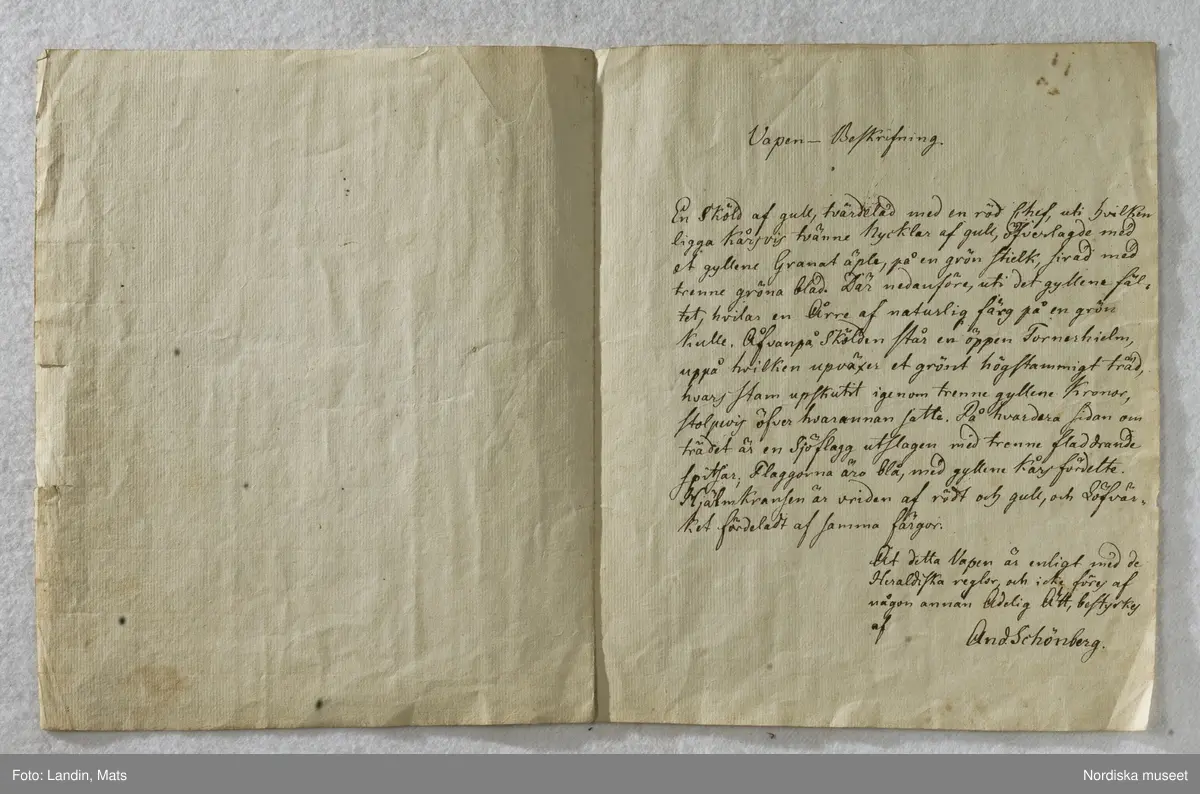 Vapen — Beskrifning.
En Sköld af gull, tvärdelad med en röd Chef, uti hvilken
ligga kårsvis tvänne Nycklar af gull, öfverlagde med
et gyllene Granat äple, på en grön stielk, sirad med
trenne gröna blad. Där nedanföre, uti det gyllene fäl-
tet, hvilar en Årre af naturlig färg på en grön
kulle. Åfvanpå Skölden står en öppen Tornerhielm,
uppå hvilken upväxer et grönt högstammigt träd,
hvars stam upskutit igenom trenne gyllene Kronor,
stolpevis öfver hvarannan satte. På hvardera sidan om
trädet är en Sjöflagg utslagen med trenne fladdrande
spitsar; Flaggorna äro blå, med gyllene kårs fördelte.
Hjälmkransen är vriden af rödt och gull, och Löfvär-
ket fördeladt af samma färgor.
At detta Vapen är enligt med de
Heraldiska reglor, och icke föres af
någon annan Adelig Ätt, bestyrkes
af
And. Schönberg.
Foto: Landin, Mats
Nordiska museet